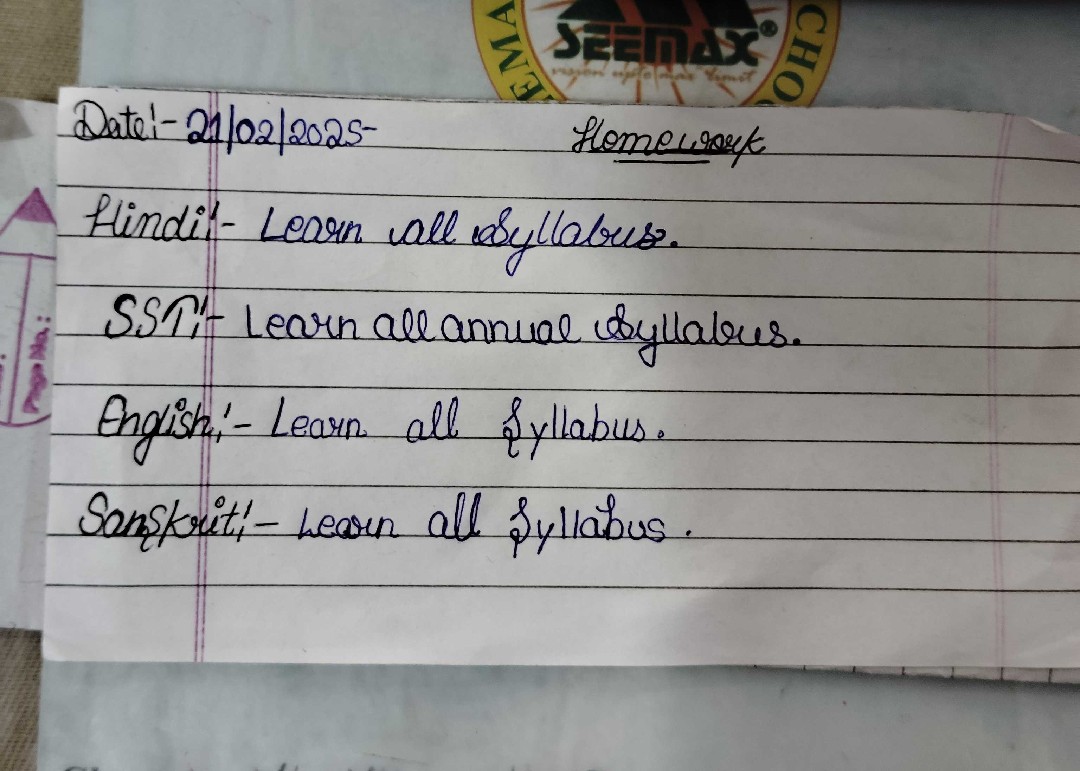 SEEMAX®
vision upto max limit
Date:- 21/02/2025 Homework
Hindi:- Learn all syllabus.
SST:- Learn all annual syllabus.
English:- Learn all Syllabus.
Sanskrit:- Learn all Syllabus.
Page No.: